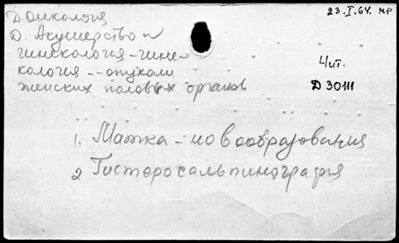 Д. Онкология
23.I.64. МР
Д. Акушерство и
гинекология - гине-
кология -- опухоли
женских половых органов
Чит.
Д 30111
1. Матка - новообразования
2 Гистеросальпинография